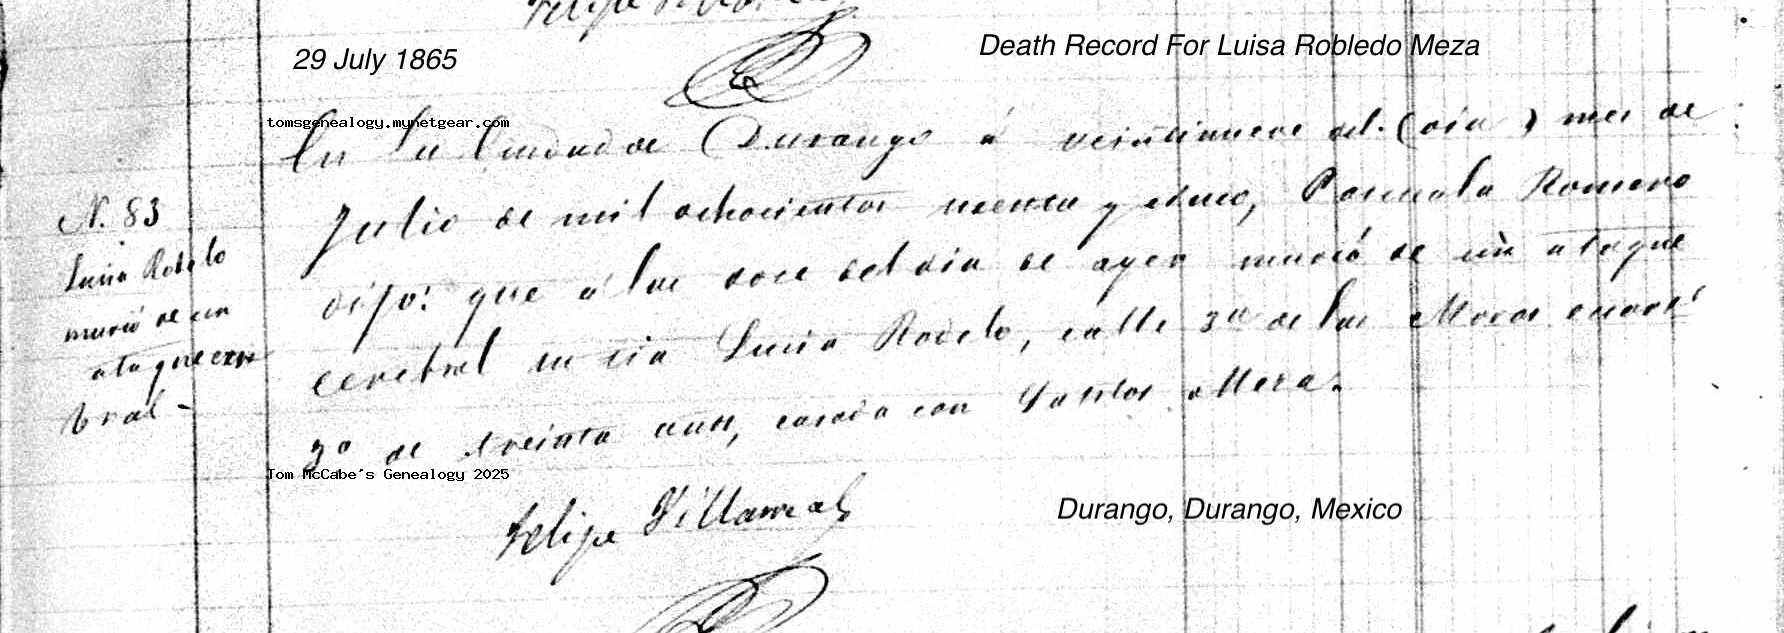 29 July 1865
Death Record For Luisa Robledo Meza
tomsgenealogy.mynetgear.com
En la Ciudad de Durango á veintinueve del (dia) mes de
Julio de mil ochocientos sesenta y cinco, Pascuala Romero
dijo: que á las doce del dia de ayer murió de un ataque
cerebral su tia Luisa Rodelo, calle 3a de las Moras cuartel
3o de treinta años, casada con Santos Meza.
N. 83
Luisa Rodelo
murió de un
ataque cere
bral -
Tom McCabe's Genealogy 2025
Felipe Villarreal
Durango, Durango, Mexico